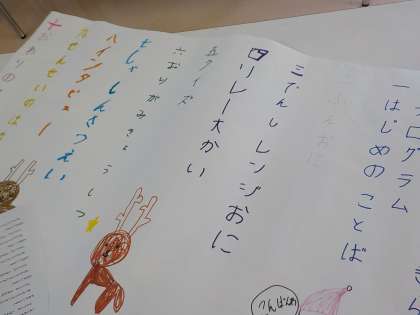 プログラム
一はじめのことば
三でんしレンジおに
四リレー大かい
五クイズ
六おりがみきょうしつ
七しゃしんさつえい
八インタビュー
九せんせいのは
十おわりの